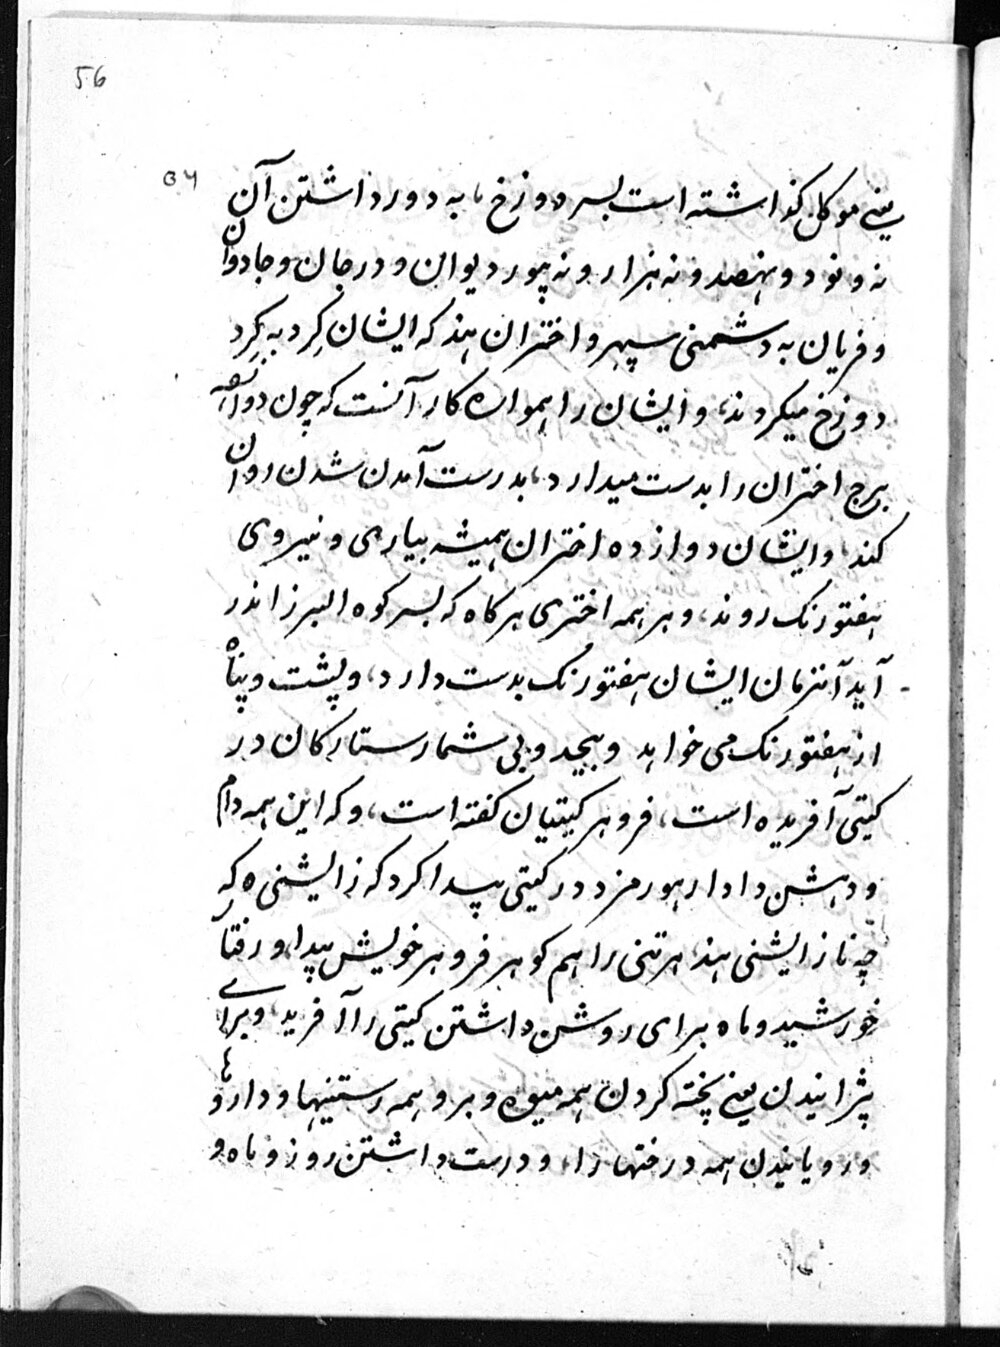 56
۵۶
یعنی موکل کذاشته است بسر دوزخ، به دور داشتن آن
نه و نود و نهصد و نه هزار و نه پیور دیوان و درجان و جادوان
و فریان به دشمنی سپهر و اختران هند که ایشان کرد به کرد
دوزخ میکردند، و ایشان را همواره کار آنست که چون دوازده
برج اختران را بدست میدارد، بدرست آمدن شدن روان
کند، و ایشان دوازده اختران همیشه بیاری و نیروی
هفتورنک روند، و هر همه اختری هر کاه که بسر کوه البرز اندر
آید آنزمان ایشان هفتورنک بدست دارد، و پشت و پناه
از هفتورنک می خواهد و بیحد و بی شمار ستارکان در
کیتی آفریده است، فروهر کیتیان کفته است، و که این همه دام
و دهشن دادار هورمزد در کیتی پیدا کرد که زایشنی ه که
چه نازایشنی هند، هر تنی را هم کوهر فروهر خویش پیدا، و رفتار
خورشید و ماه برای روشن داشتن کیتی را آفرید، و برای
پژانیدن یعنی پخته کردن همه میوه و بر و همه رستنیها و داروها
و رویانیدن همه درختها را، و درست داشتن روز و ماه و